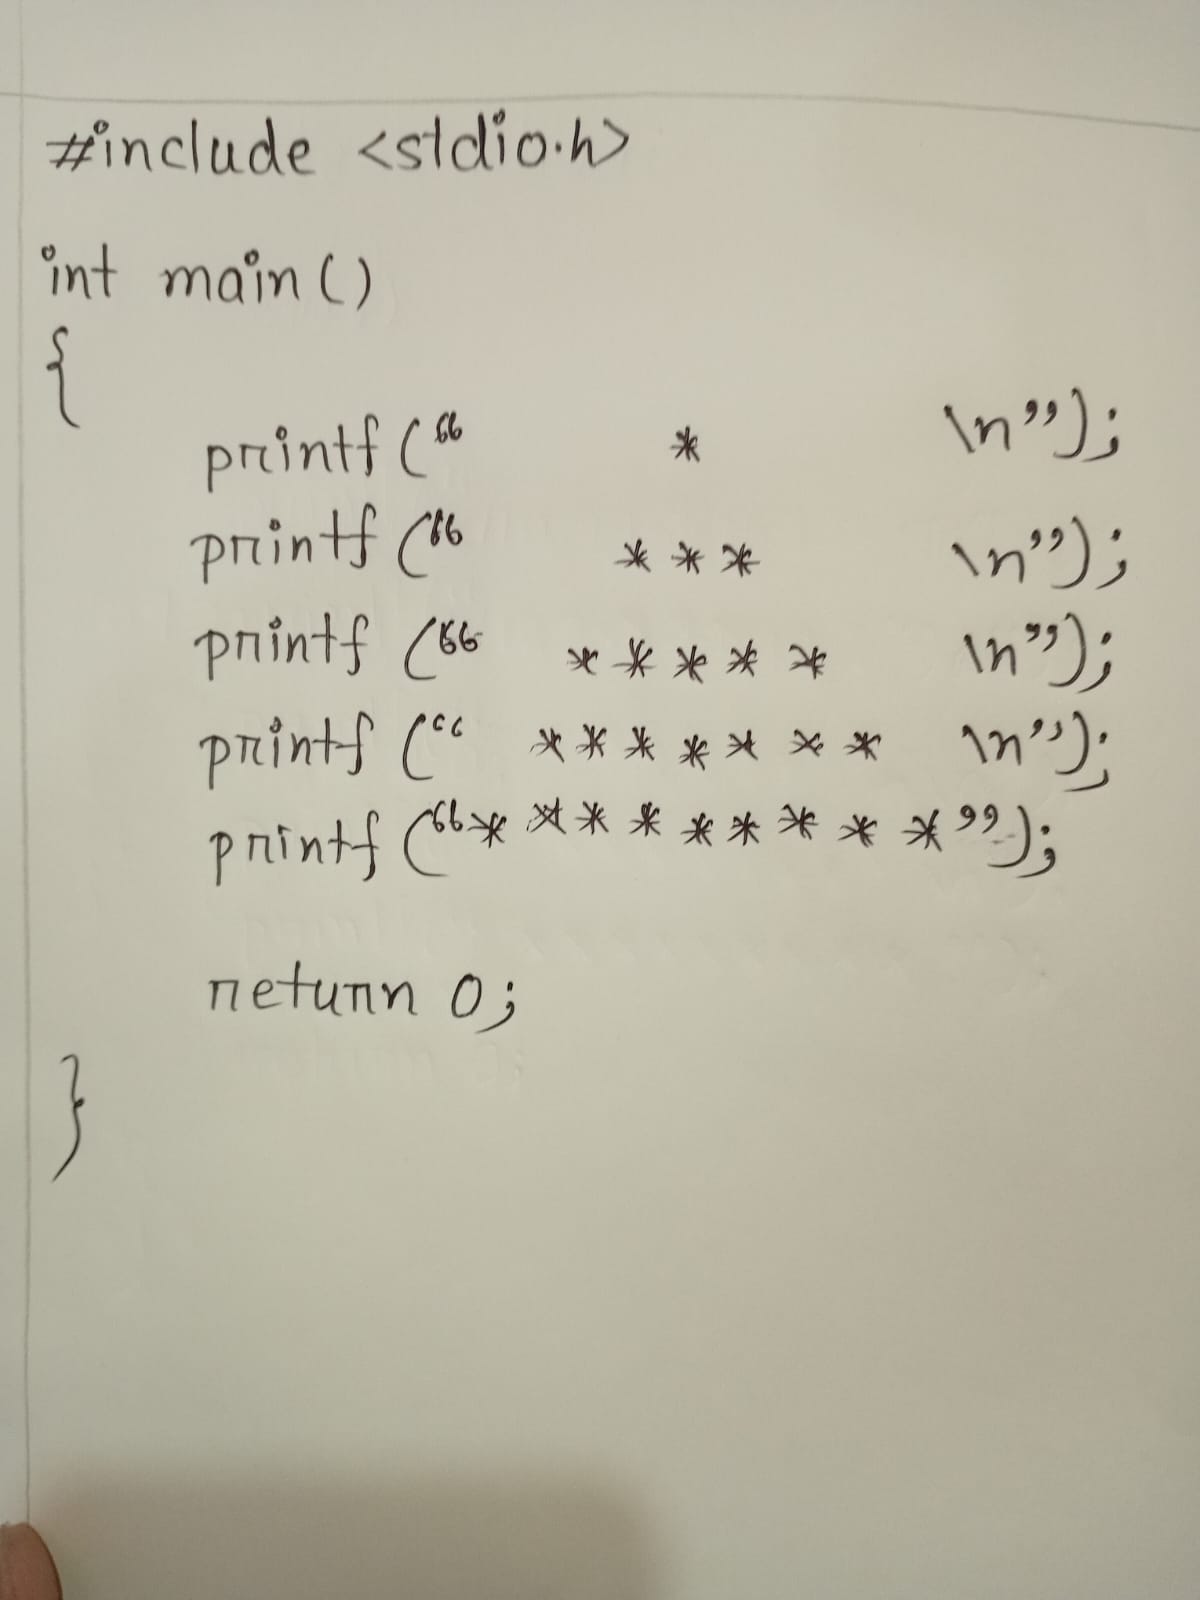 #include <stdio.h>
int main()
{
printf("        *        \n");
printf("      * * *      \n");
printf("    * * * * *    \n");
printf("  * * * * * * *  \n");
printf("* * * * * * * * *");
return 0;
}